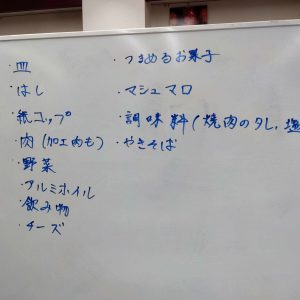 ・皿
・はし
・紙コップ
・肉 (加工肉も)
・野菜
・アルミホイル
・飲み物
・チーズ
・つまめるお菓子
・マシュマロ
・調味料 (焼肉のタレ、塩
・やきそば